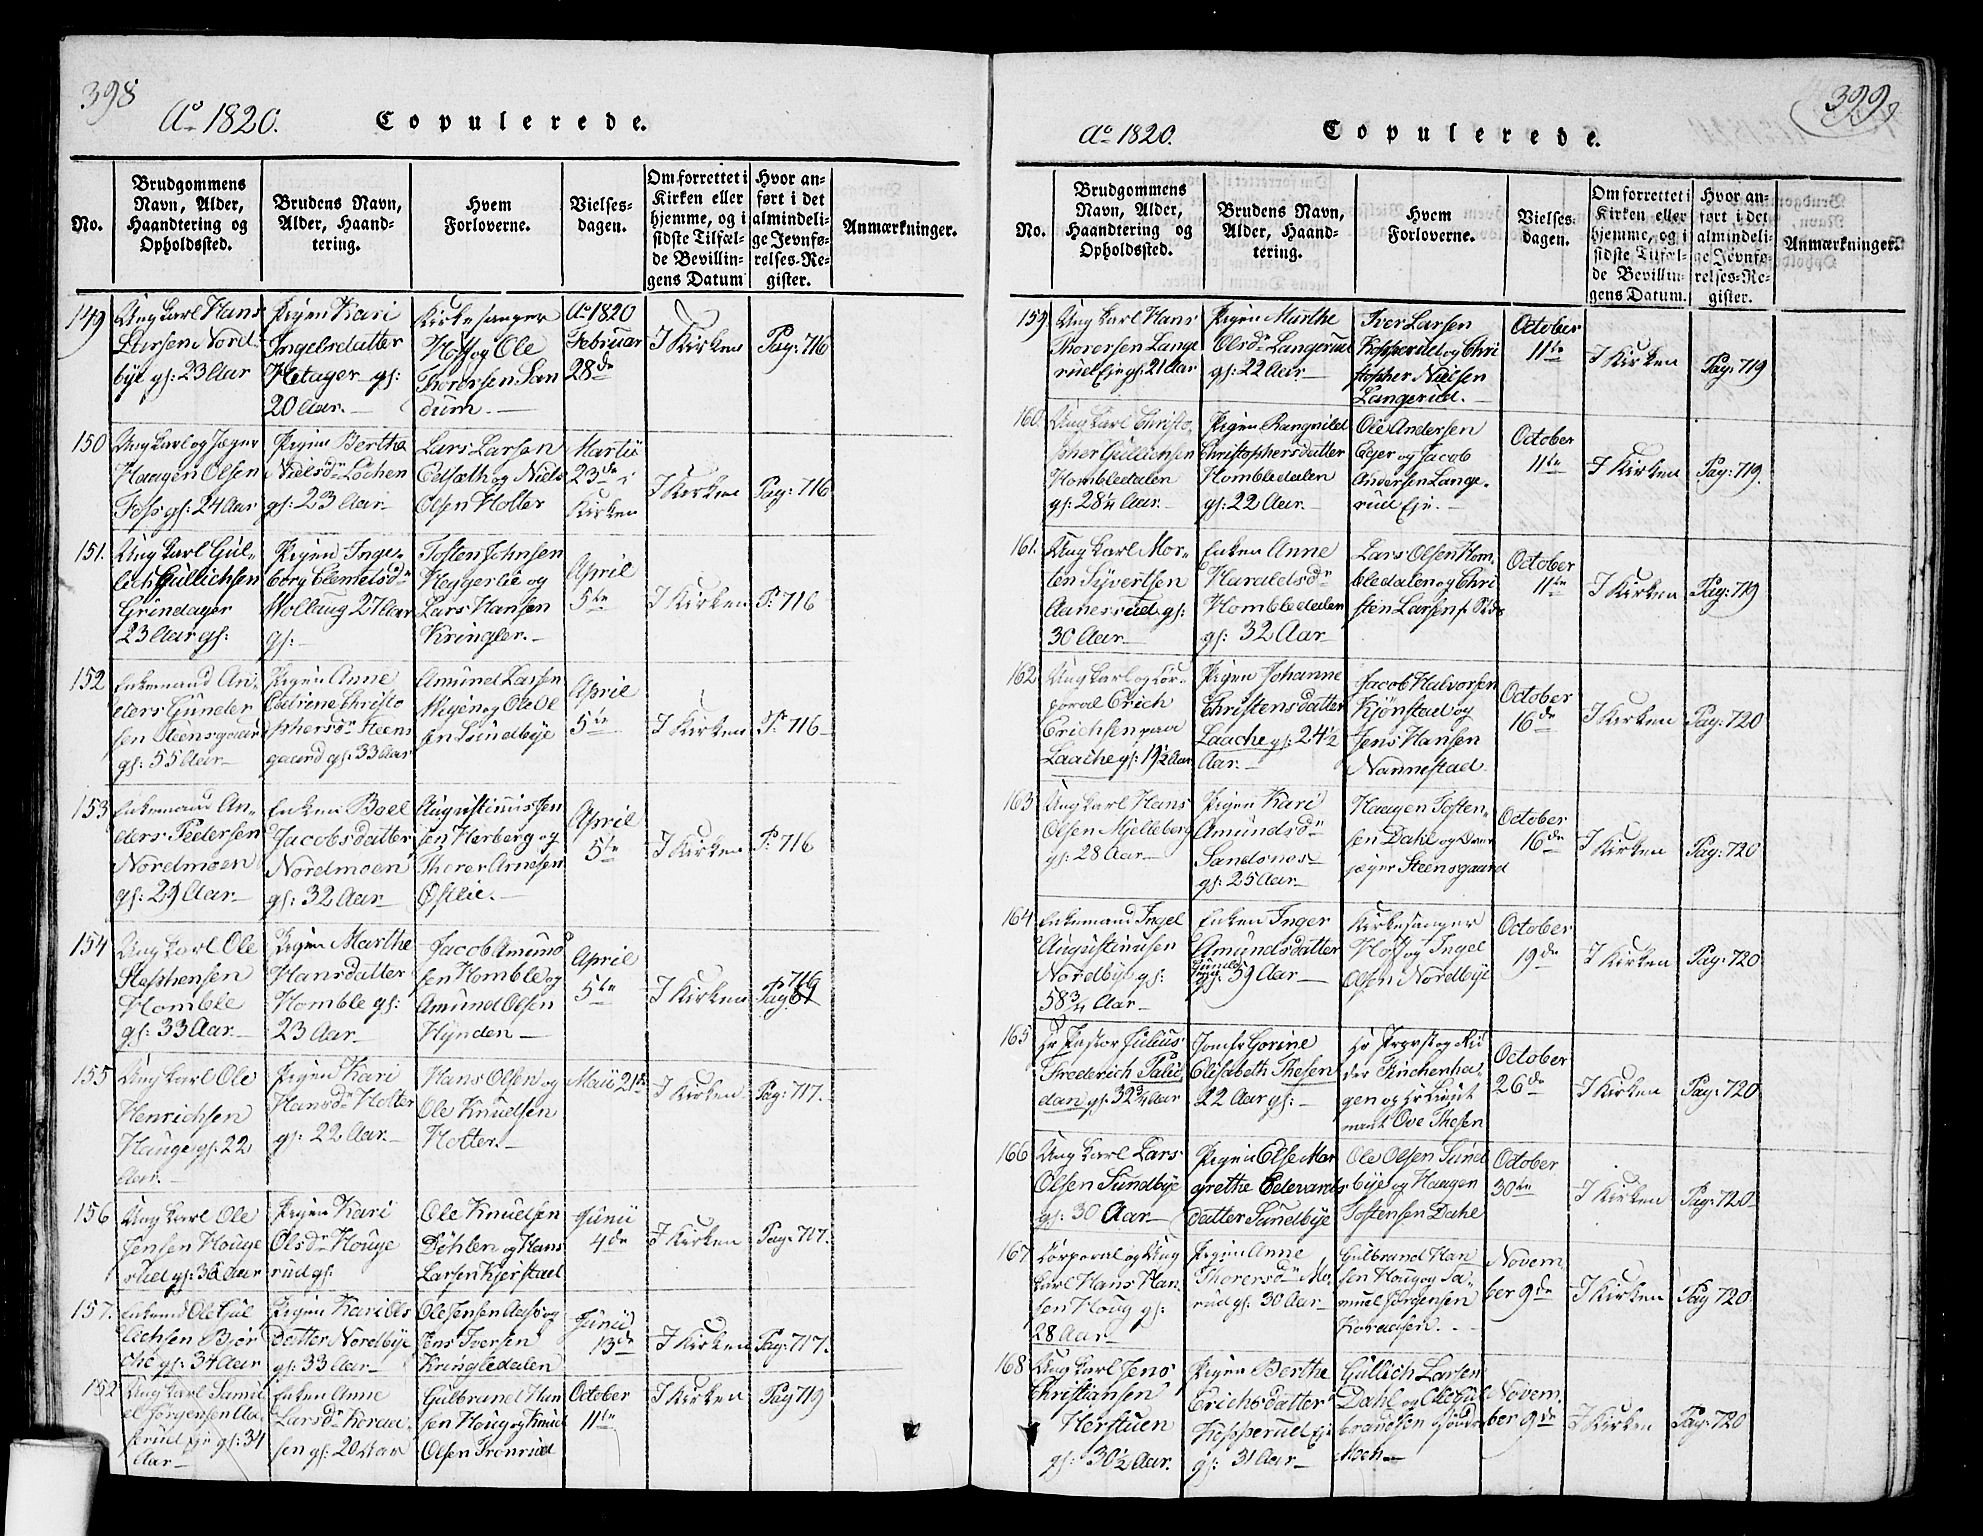 398
Ao 1820. Copulerede.
No.
Brudgommens Navn, Alder, Haandtering og Opholdssted.
Brudens Navn, Alder, Haandtering.
Hvem Forloverne.
Vielses-dagen.
Om forrettet i Kirken eller hjemme, og i sidste Tilfælde Bevillingens Datum
Hvor anført i det almindelige Jevnførelses-Register.
Anmærkninger.
149
Ung Karl Hans
Larsen Nord-
bye gl: 23 Aar
Pigen Kari
Ingebrdatter
Hetager gl:
20 Aar.
Kirkesanger
Hoff og Ole
Thorersen San
dum.
Ao 1820
Februar
28de
I Kirken
Pag: 716
150
Ung Karl og Jæger
Haagen Olsen
Foss gl: 24 Aar
Pigen Bertha
Nielsdr Løchen
gl: 23 Aar
Lars Larsen
Edsæth og Niels
Olsen Holter
Martii
23de i
Kirken
I Kirken
Pag: 716
151.
Ung Karl Gul-
lich Gullichsen
Grindager
23 Aar gl:
Pigen Inge-
borg Clemetsdr
Wollaug 27 Aar
gl:
Tosten Johnsen
Heggerlie og
Lars Hansen
Kringler.
April
5te
I Kirken
P: 716
152
Enkemand An-
ders Gunder
sen Steensgaard
gl: 55 Aar
Pigen Anne
Catrine Christo
phersdr Steens
gaard gl: 33 Aar
Amund Larsen
Wigen og Ole Ol
sen Sundbye
April
5te
I Kirken
P: 716
153
Enkemand An-
ders Pedersen
Nordmoen
gl: 29 Aar
Enken Boel
Jacobsdatter
Nordmoen
gl: 32 Aar
Augustinus Jen
sen Herberg og
Thorer Arnesen
Østlie.
April
5te
I Kirken
P: 716
154
Ung Karl Ole
Stephensen
Homble
gl: 33 Aar
Pigen Marthe
Hansdatter
Homble gl:
23 Aar
Jacob Amund
sen Homble og
Amund Olsen
Hynden
April
5te
I Kirken
Pag: 716
155
Ung Karl Ole
Henrichsen
Hauge gl: 22
Aar.
Pigen Kari
Hansdr Holter
gl: 22 Aar
Hans Olsen og
Ole Knudsen
Holter.
Maii 21de
I Kirken
Pag: 717.
156
Ung Karl Ole
Jensen Houge
rud gl: 36 Aar
Pigen Kari
Olsdr Houge
rud gl:
Ole Knudsen
Døhlen og Hans
Larsen Kjerstad
Junii
4de
I Kirken
Pag: 717.
157.
Enkemd Ole Gul
lichsen Bjør
che gl: 34 Aar
Pigen Kari Ols
datter Nordbye
gl: 33 Aar
Ole Jensen Aas og
Jens Iversen
Kringledalen
Junii
13de
I Kirken
Pag: 717.
Ung Karl Samu
el Jørgensen Aa
serud Eje gl: 34
Aar
Enken Anne
Larsdr Korad
sen gl: 20 Aar
Gulbrand Han
sen Houg og Knud
Olsen Tronrud
October
11te
I Kirken
Pag 719
399
Ao 1820. Copulerede.
No.
Brudgommens Navn, Alder, Haandtering og Opholdssted.
Brudens Navn, Alder, Haandtering.
Hvem Forloverne.
Vielses-dagen.
Om forrettet i Kirken eller hjemme, og i sidste Tilfælde Bevillingens Datum.
Hvor anført i det almindelige Jevnførelses-Register.
Anmærkninger.
159
Ung Karl Hans
Thorersen Lange
rud Eje gl: 21 Aar
Pigen Marthe
Olsdr Langerud
gl: 22 Aar
Iver Larsen
Kopperud og Chri
stopher Nielsen
Langerud.
October
11te
I Kirken
Pag: 719
160.
Ung Karl Christo
pher Gullichsen
Hombledalen
gl: 28¼ Aar
Pigen Rangnild
Christophersdatter
Hombledalen
gl: 22 Aar
Ole Andersen
Eger og Jacob
Andersen Lange-
rud Eje.
October
11te
I Kirken
Pag: 719.
161.
Ung Karl Mor-
ten Syvertsen
Aanesrud gl:
30 Aar
Enken Anne
Haraldsdr
Hombledalen
gl: 32 Aar
Lars Olsen Hom
bledalen og Chri
sten Larsen
October
11te
I Kirken
Pag: 719
162
Ung Karl og Cor-
poral Erich
Erichsen paa
Laache gl: 19½ Aar
Pigen Johanne
Christensdatter
Laache gl: 24½
Aar.
Jacob Halvorsen
Kjønstad og
Jens Hansen
Nannestad
October
16de
I Kirken
Pag: 720
163
Ung Karl Hans
Olsen Mjelleberg
gl: 28 Aar
Pigen Kari
Amundsdr
Sandsnese
gl: 25 Aar
Haagen Tosten-
sen Dahl og
Steensgaard
October
16de
I Kirken
Pag: 720
164
Enkemand Ingel
Augustinusen
Nordbye gl:
58¾ Aar
Enken Inger
Amundsdatter
gl: 59 Aar
Kirkesanger
Hoff og Ingel
Olsen Nordbye
October
19de
I Kirken
Pag: 720
165
Hr Pastor Julius
Frederich Palu-
dan gl: 32¾ Aar
Jomfr Gorine
Elisabeth Thesen
22 Aar gl:
Hr Provst og Rid
der Finchenha-
gen og Hr Lieut
nant Ove Thesen
October
26de
I Kirken
Pag: 720
166
Ung Karl Lars
Olsen Sundbye
gl: 30 Aar
Pigen Else Mar
grethe Edevards
datter Sundbye
Ole Olsen Sund
bye og Haagen
Tostensen Dahl
October
30te
I Kirken
Pag: 720
167
Corporal og Ung
Karl Hans Han
sen Houg gl:
28 Aar
Pigen Anne
Thorersdr Mo-
rud gl: 30 Aar
Gulbrand Han
sen Houg og Sa-
muel Jørgensen
Koradsen.
Novem
ber 9de
I Kirken
Pag 720
168
Ung Karl Jens
Christiansen
Herstuen
gl: 30½ Aar.
Pigen Berthe
Erichsdatter
Kopperud Eje
gl: 31 Aar
Gullich Larsen
Dahl og Ole Gul
brandsen
Novem-
ber 9de
I Kirken
Pag: 720